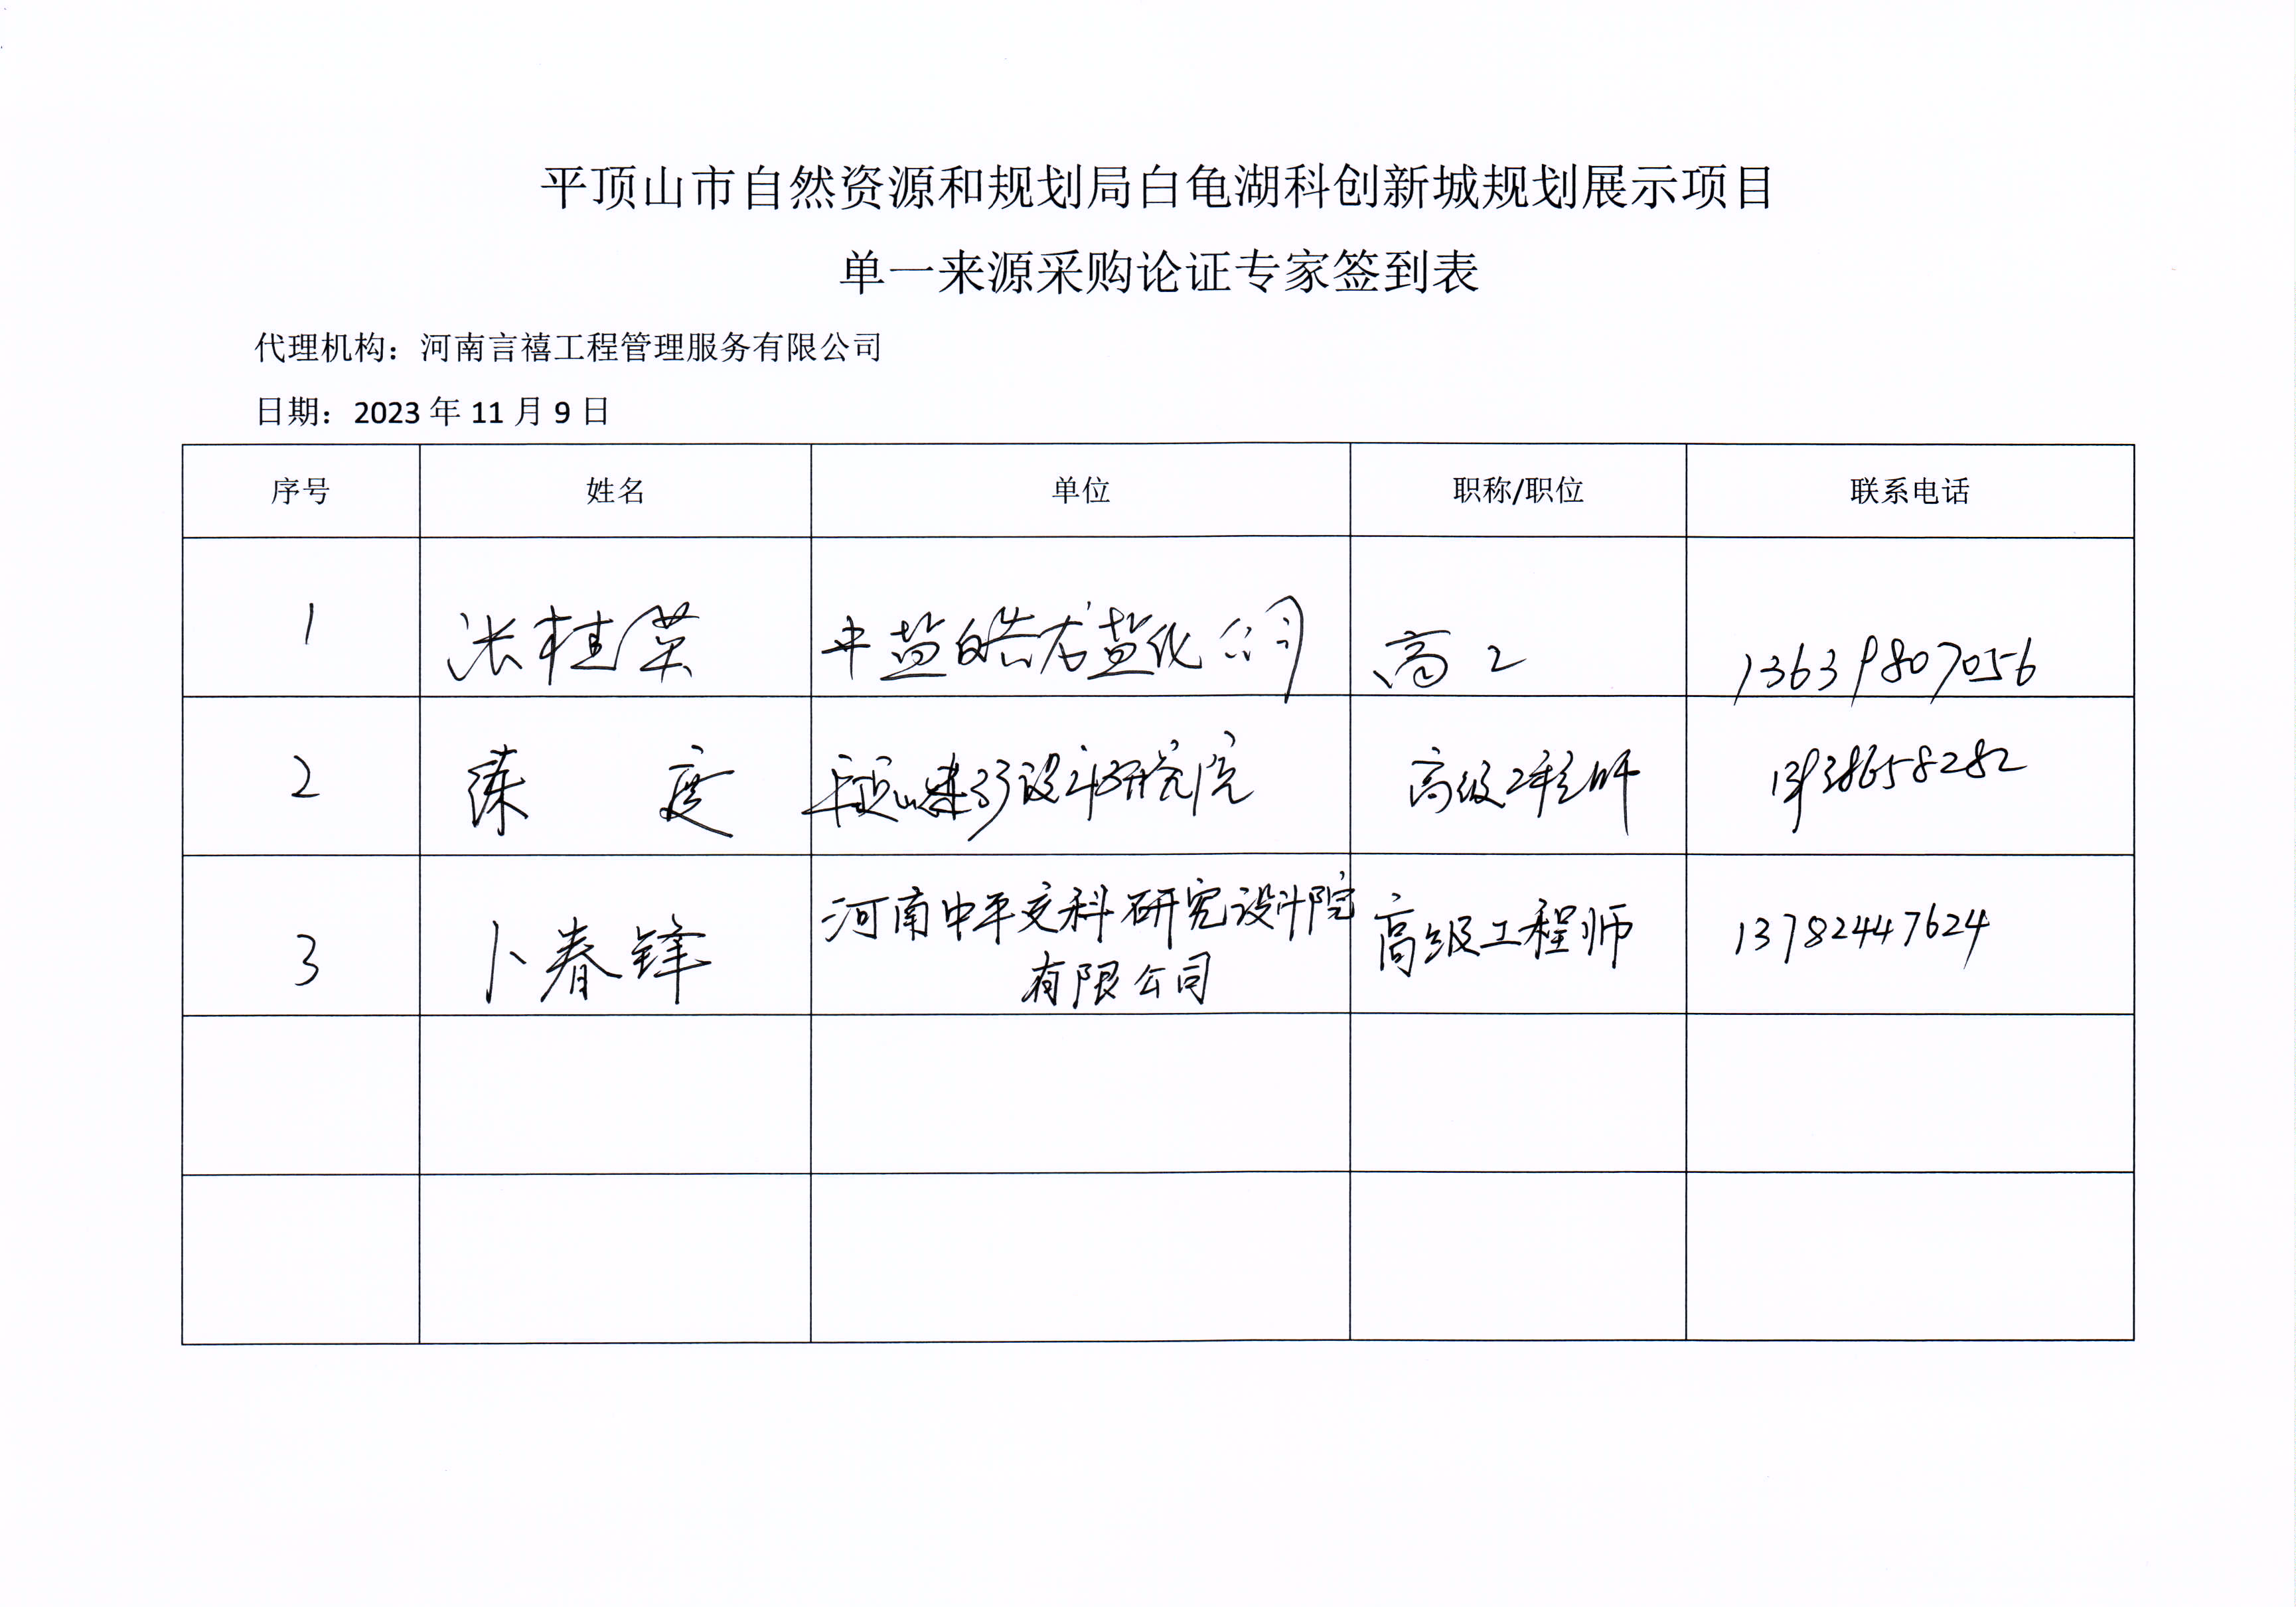 平顶山市自然资源和规划局白龟湖科创新城规划展示项目
单一来源采购论证专家签到表
代理机构：河南言禧工程管理服务有限公司
日期：2023 年 11 月 9 日
序号 姓名 单位 职称/职位 联系电话
1 张桂英 中盐皓龙盐化公司 高工 13639807056
2 度 设计研究院 高级工程师 13938658282
3 卜春锋 河南中平交科研究设计院 高级工程师 13782447624
有限公司